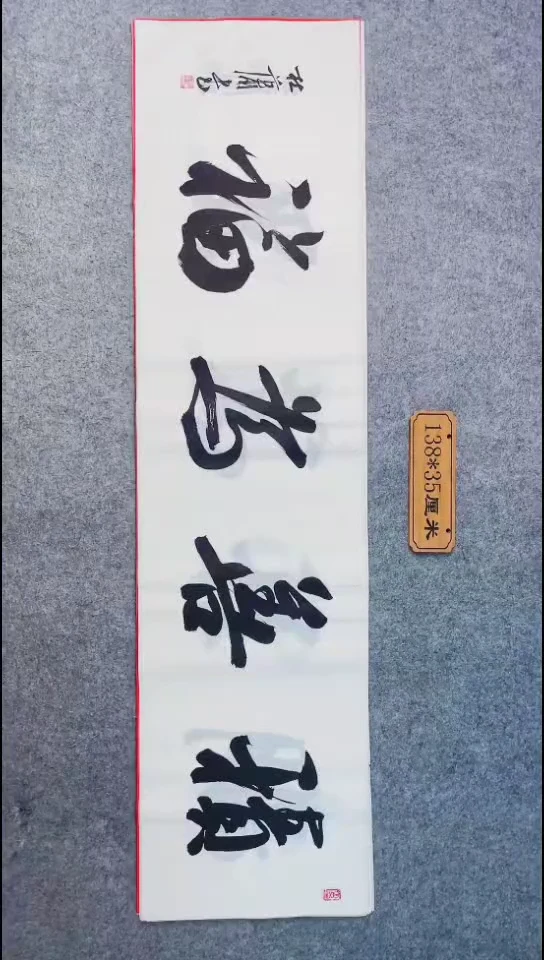 積善为福
138*35厘米